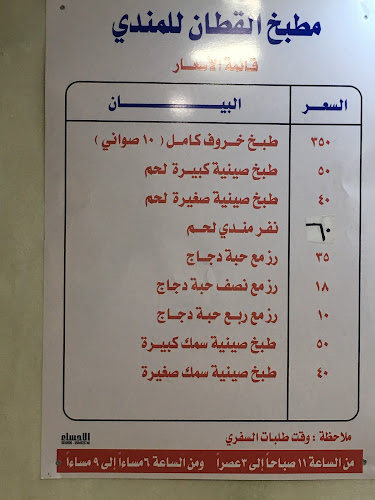 مطبخ القطان للمندي
قائمة الاسعار
البيـــان السعر
طبخ خروف كامل ( ١٠ صواني ) ٣٥٠
طبخ صينية كبيرة لحم ٥٠
طبخ صينية صغيرة لحم ٤٠
نفر مندي لحم ٦٠
رز مع حبة دجاج ٣٥
رز مع نصف حبة دجاج ١٨
رز مع ربع حبة دجاج ١٠
طبخ صينية سمك كبيرة ٥٠
طبخ صينية سمك صغيرة ٤٠
ملاحظة : وقت طلبات السفري
الاحساء
من الساعة ١١ صباحاً إلى ٣ عصراً ومن الساعة ٦ مساءاً إلى ٩ مساءاً